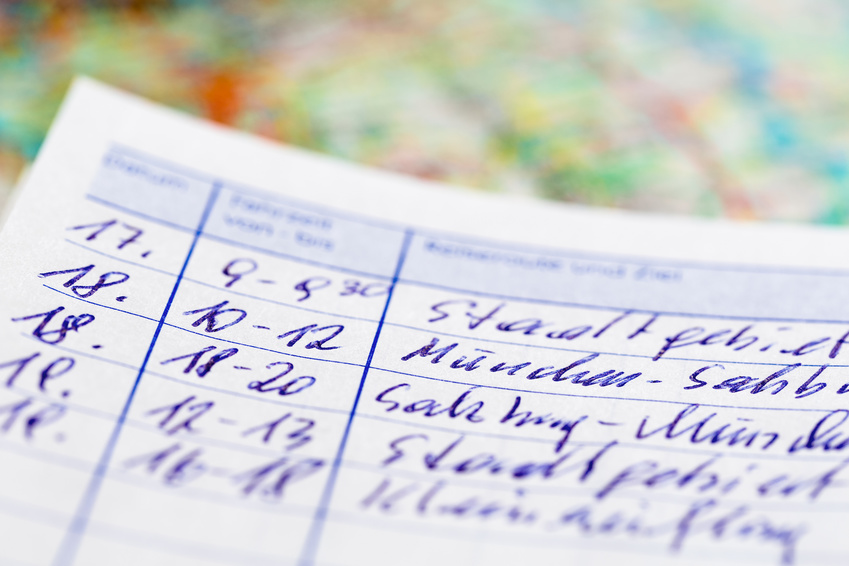 Datum Fahrzeit Reiseroute und Ziel
von - bis
17. 9-9 30 Stadtgebiet
18. 10-12 München-Salzbu
18. 18-20 Salzburg-Münche
19. 12-13 Stadtgebiet
19. 16-18